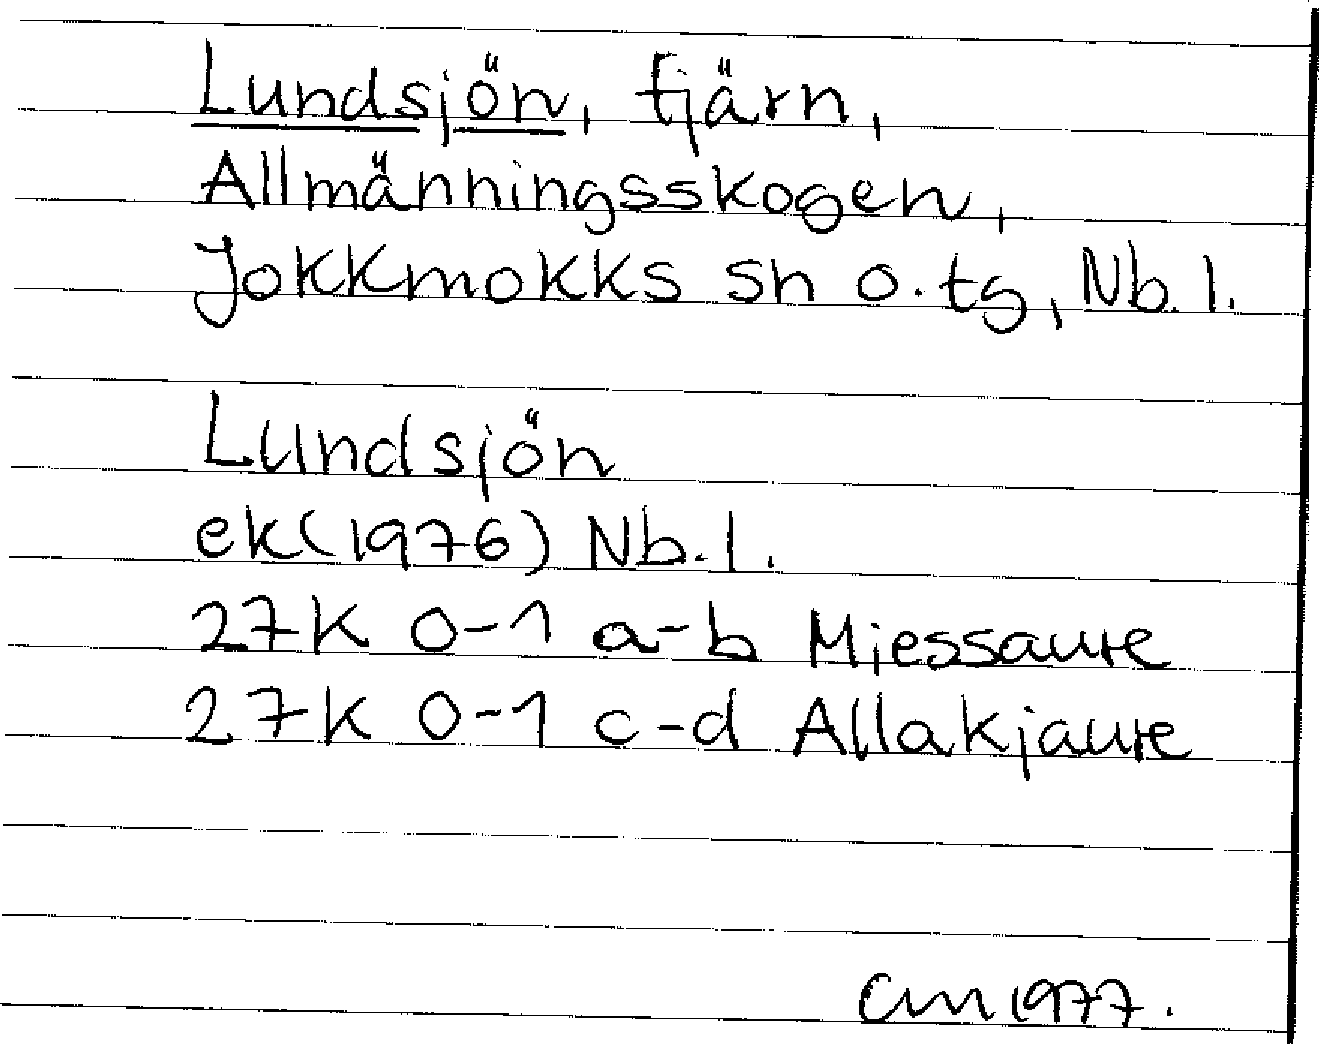 Lundsjön, tjärn,
Allmänningsskogen,
Jokkmokks sn o. tg, Nb. l.
Lundsjön
ek(1976) Nb. l.
27K 0-1 a-b Miessaure
27K 0-1 c-d Allakjaure
CM 1977.